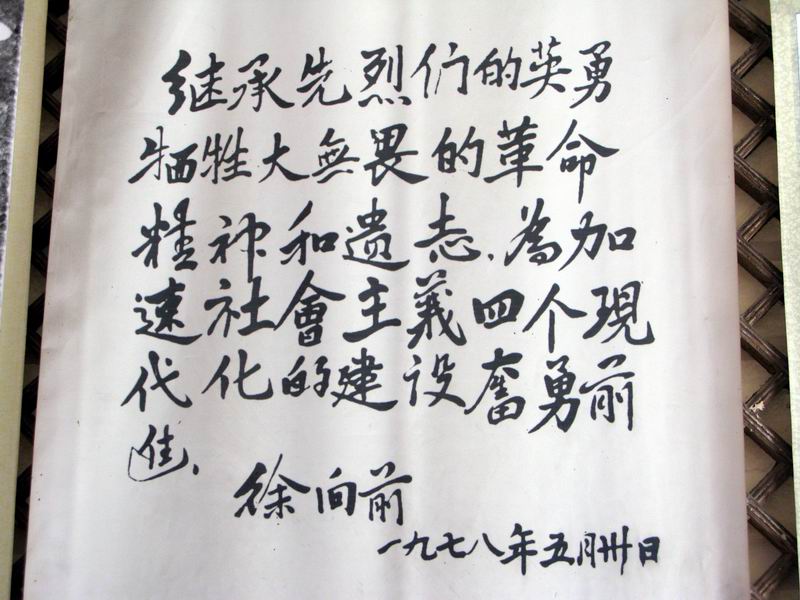 继承先烈们的英勇
牺牲大無畏的革命
精神和遗志，為加
速社會主義四个現
代化的建设奮勇前
進。
徐向前
一九七八年五月卅日